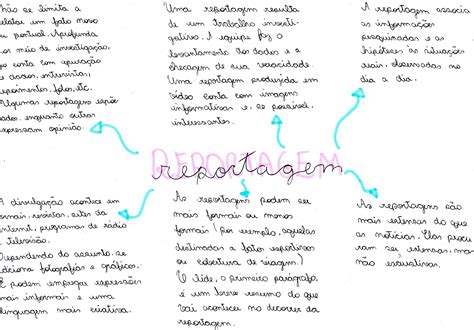 Não se limita a
relatar um fato novo
ou pontual. Aprofunda
por meio de investigação,
conta com apuração
e dados, entrevistas,
depoimentos, fotos, etc.
Algumas reportagens expõe
dados, enquanto outras
expressam opinião.
Uma reportagem resulta
de um trabalho investi-
gativo. A equipe faz o
levantamento dos dados e a
checagem de sua veracidade.
Uma reportagem produzida em
vídeo conta com imagens
informativas e, se possível,
interessantes.
A reportagem associa
as informações
pesquisadas e as
hipóteses às situações
reais, observadas no
dia a dia.
REPORTAGEM
reportagem
A divulgação acontece em
jornais, revistas, sites da
internet, programas de rádio
e televisão.
Dependendo do assunto, se
adiciona fotografias e gráficos.
E podem empregar expressões
mais informais e uma
linguagem mais criativa.
As reportagens podem ser
mais formais ou menos
formais (por exemplo, aquelas
destinadas a fatos esportivos
ou cobertura de viagens)
O lide, o primeiro parágrafo,
é um breve resumo do que
vai acontecer no decorrer da
reportagem.
As reportagens são
mais extensas do que
as notícias. Elas procu
ram ser extensas, mas
não exaustivas.